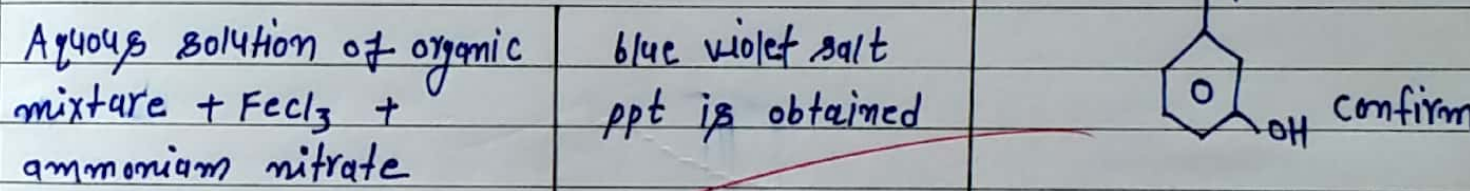 Aquous solution of organic
mixture + FeCl3 +
ammoniam nitrate
blue violet salt
ppt is obtained
OH confirm